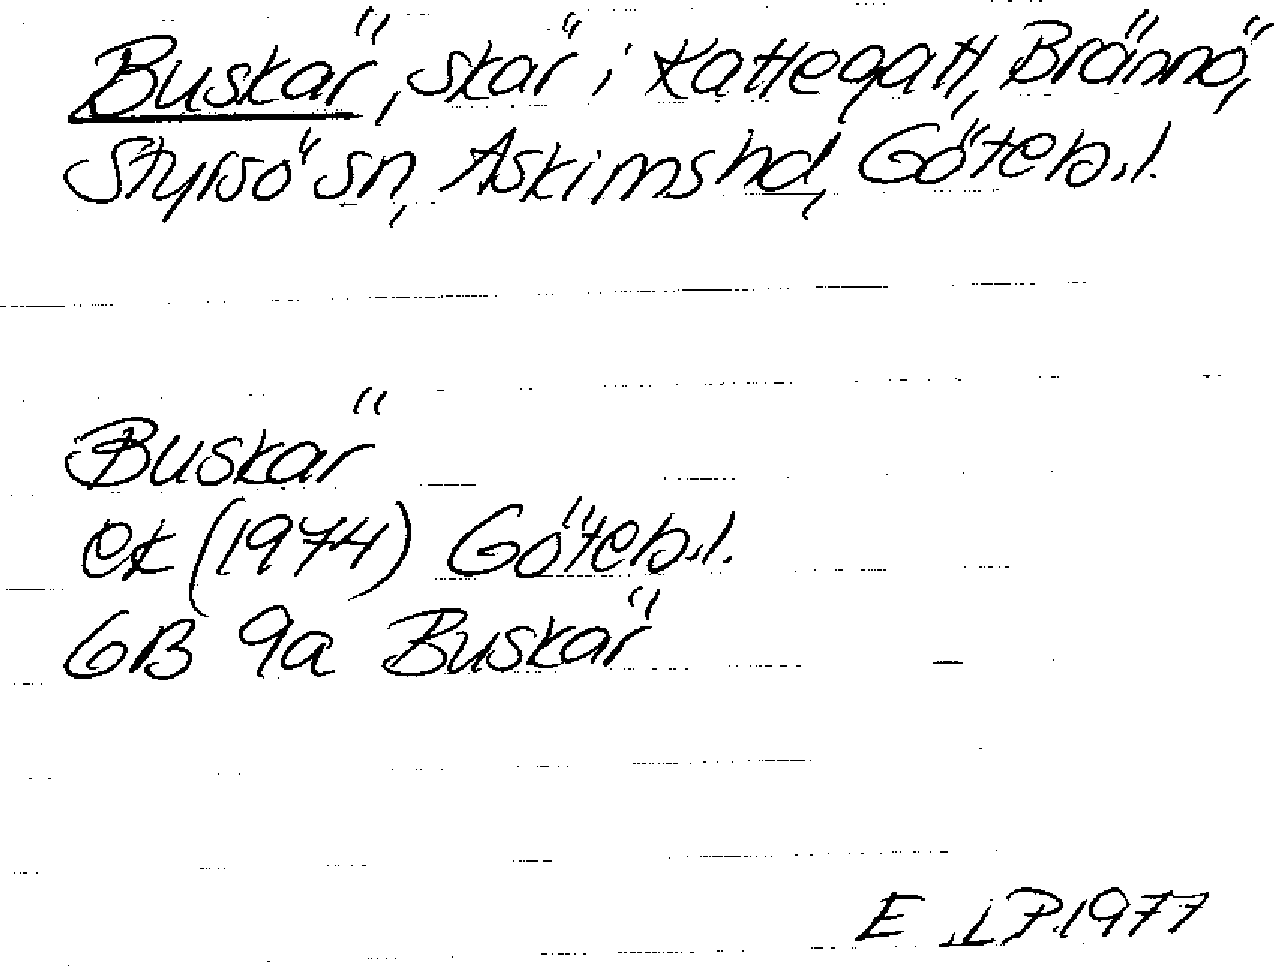 Buskär, skär i Kattegatt, Brännö,
Styrsö sn, Askims hd, Göteb.l.
Buskär
ek (1974) Göteb.l.
GB 9a Buskär
E LP.1977